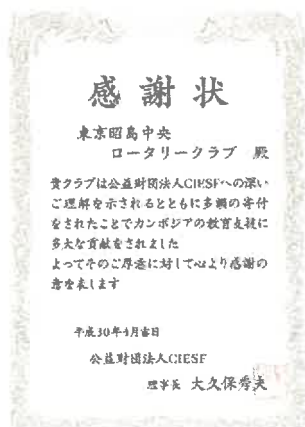 感謝状
東京昭島中央
ロータリークラブ 殿
貴クラブは公益財団法人CIESFへの深い
ご理解を示されるとともに多額の寄付
をされたことでカンボジアの教育支援に
多大な貢献をされました
よってそのご厚意に対して心より感謝の
意を表します
平成30年4月吉日
公益財団法人CIESF
理事長 大久保秀夫